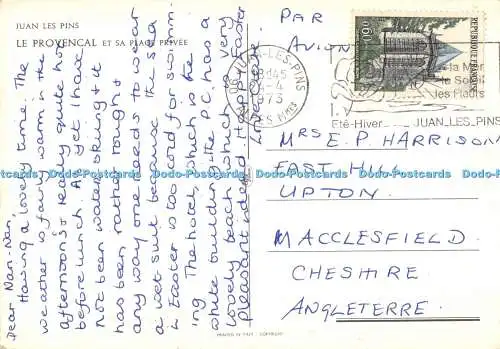 JUAN LES PINS
LE PROVENÇAL ET SA PLAGE PRIVÉE
Dear Nan-Nan,
Having a lovely time. The
weather is fairly warm in the
afternoon & really quite hot
before lunch. As yet I have
not been water skiing & it
has been rather rough &
any way one needs to wear
a wet suit because the sea
in Easter is too cold for swimm-
ing. The hotel, which is the
white building in the PC, has a
lovely beach which is very
pleasant indeed. Happy Easter
Love
PAR
AVION
JUAN-LES-PINS
18H45
-4
1973
ALPES MMES
la Mer
le Soleil
les Fleurs
Eté-Hiver JUAN_LES_PINS
0,60
REPUBLIQUE FRANÇAISE
MRS E. P. HARRISON
EAST HILL
UPTON
MACCLESFIELD
CHESHIRE
ANGLETERRE.
PRINTED IN ITALY - COPYRIGHT
Dado-Postcards Dado-Postcards Dado-Postcards Dado-Postcards